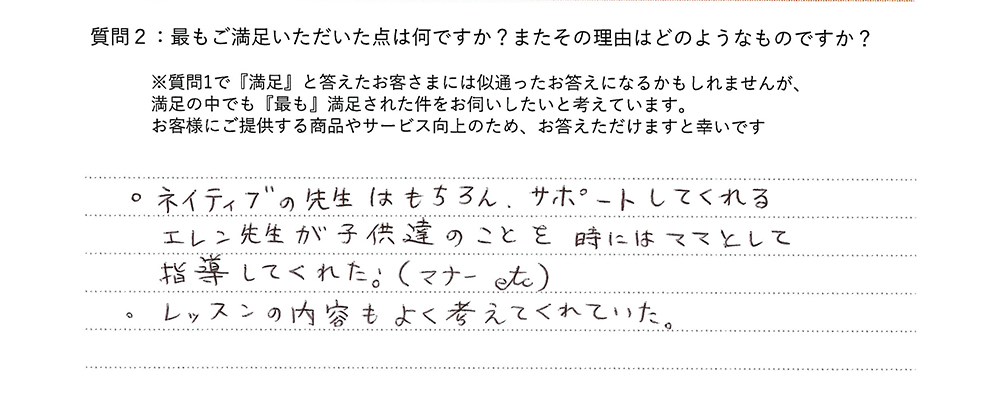 質問２：最もご満足いただいた点は何ですか？またその理由はどのようなものですか？
※質問1で『満足』と答えたお客さまには似通ったお答えになるかもしれませんが、
満足の中でも『最も』満足された件をお伺いしたいと考えています。
お客様にご提供する商品やサービス向上のため、お答えただけますと幸いです
○ ネイティブの先生はもちろん、サポートしてくれる
エレン先生が子供達のことを 時にはママとして
指導してくれた。（マナー etc）
○ レッスンの内容もよく考えてくれていた。